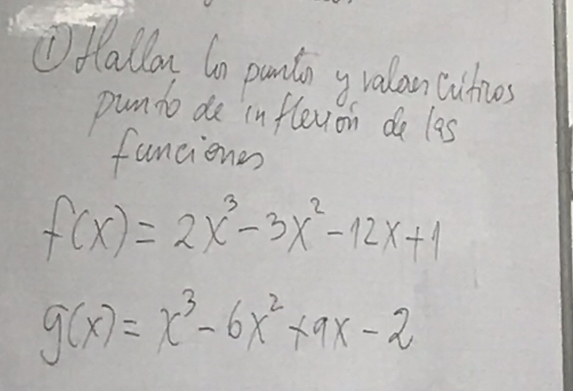 ① Hallar los puntos y valores críticos
punto de inflexión de las
funciones
f(x) = 2x³ - 3x² - 12x + 1
g(x) = x³ - 6x² + 9x - 2